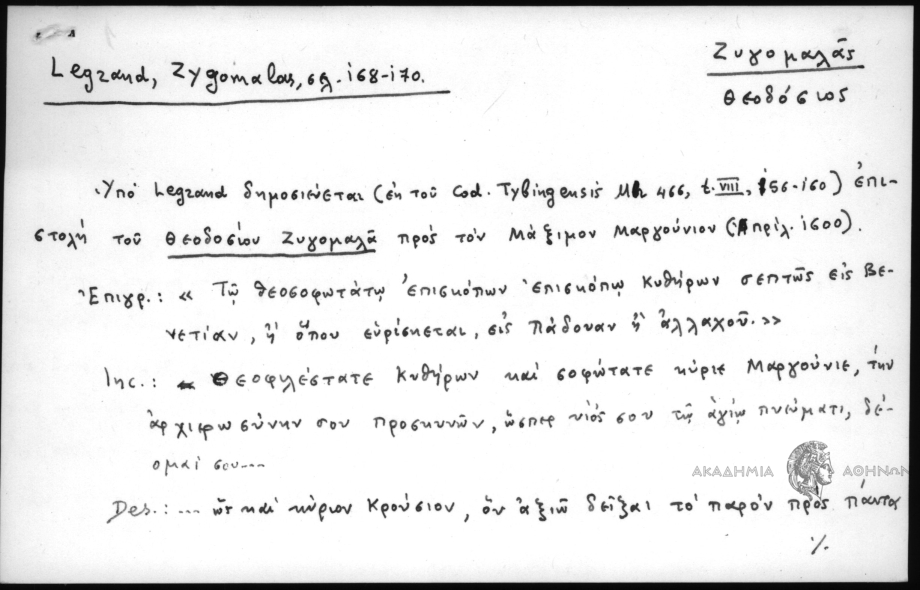 Legrand, Zygomalas, σελ. 168-170.
Ζυγομαλᾶς
Θεοδόσιος
Ὑπὸ Legrand δημοσιεύεται (ἐκ τοῦ Cod. Tybingensis Mh 466, t. VIII, 156-160) ἐπι-
στολὴ τοῦ Θεοδοσίου Ζυγομαλᾶ πρὸς τὸν Μάξιμον Μαργούνιον (Ἀπρίλ. 1600).
Ἐπιγρ.: « Τῷ θεοσοφωτάτῳ ἐπισκόπων ἐπισκόπῳ Κυθήρων σεπτῶς εἰς Βε-
νετίαν, ἢ ὅπου εὑρίσκεται, εἰς Πάδουαν ἢ ἀλλαχοῦ.»
Inc.: Θεοφιλέστατε Κυθήρων καὶ σοφώτατε κύριε Μαργούνιε, τὴν
ἀρχιερωσύνην σου προσκυνῶν, ὥσπερ υἱός σου τῷ ἁγίῳ πνεύματι, δέ-
ομαί σου...
ΑΚΑΔΗΜΙΑ ΑΘΗΝΩΝ
Des.: ... ὡς καὶ κύριον Κρούσιον, ὃν ἀξιῶ δεῖξαι τὸ παρὸν πρὸς πάντας
./.